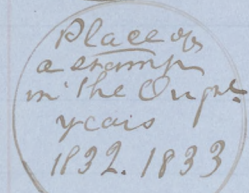 Place of
a stamp
in the
years
1832. 1833